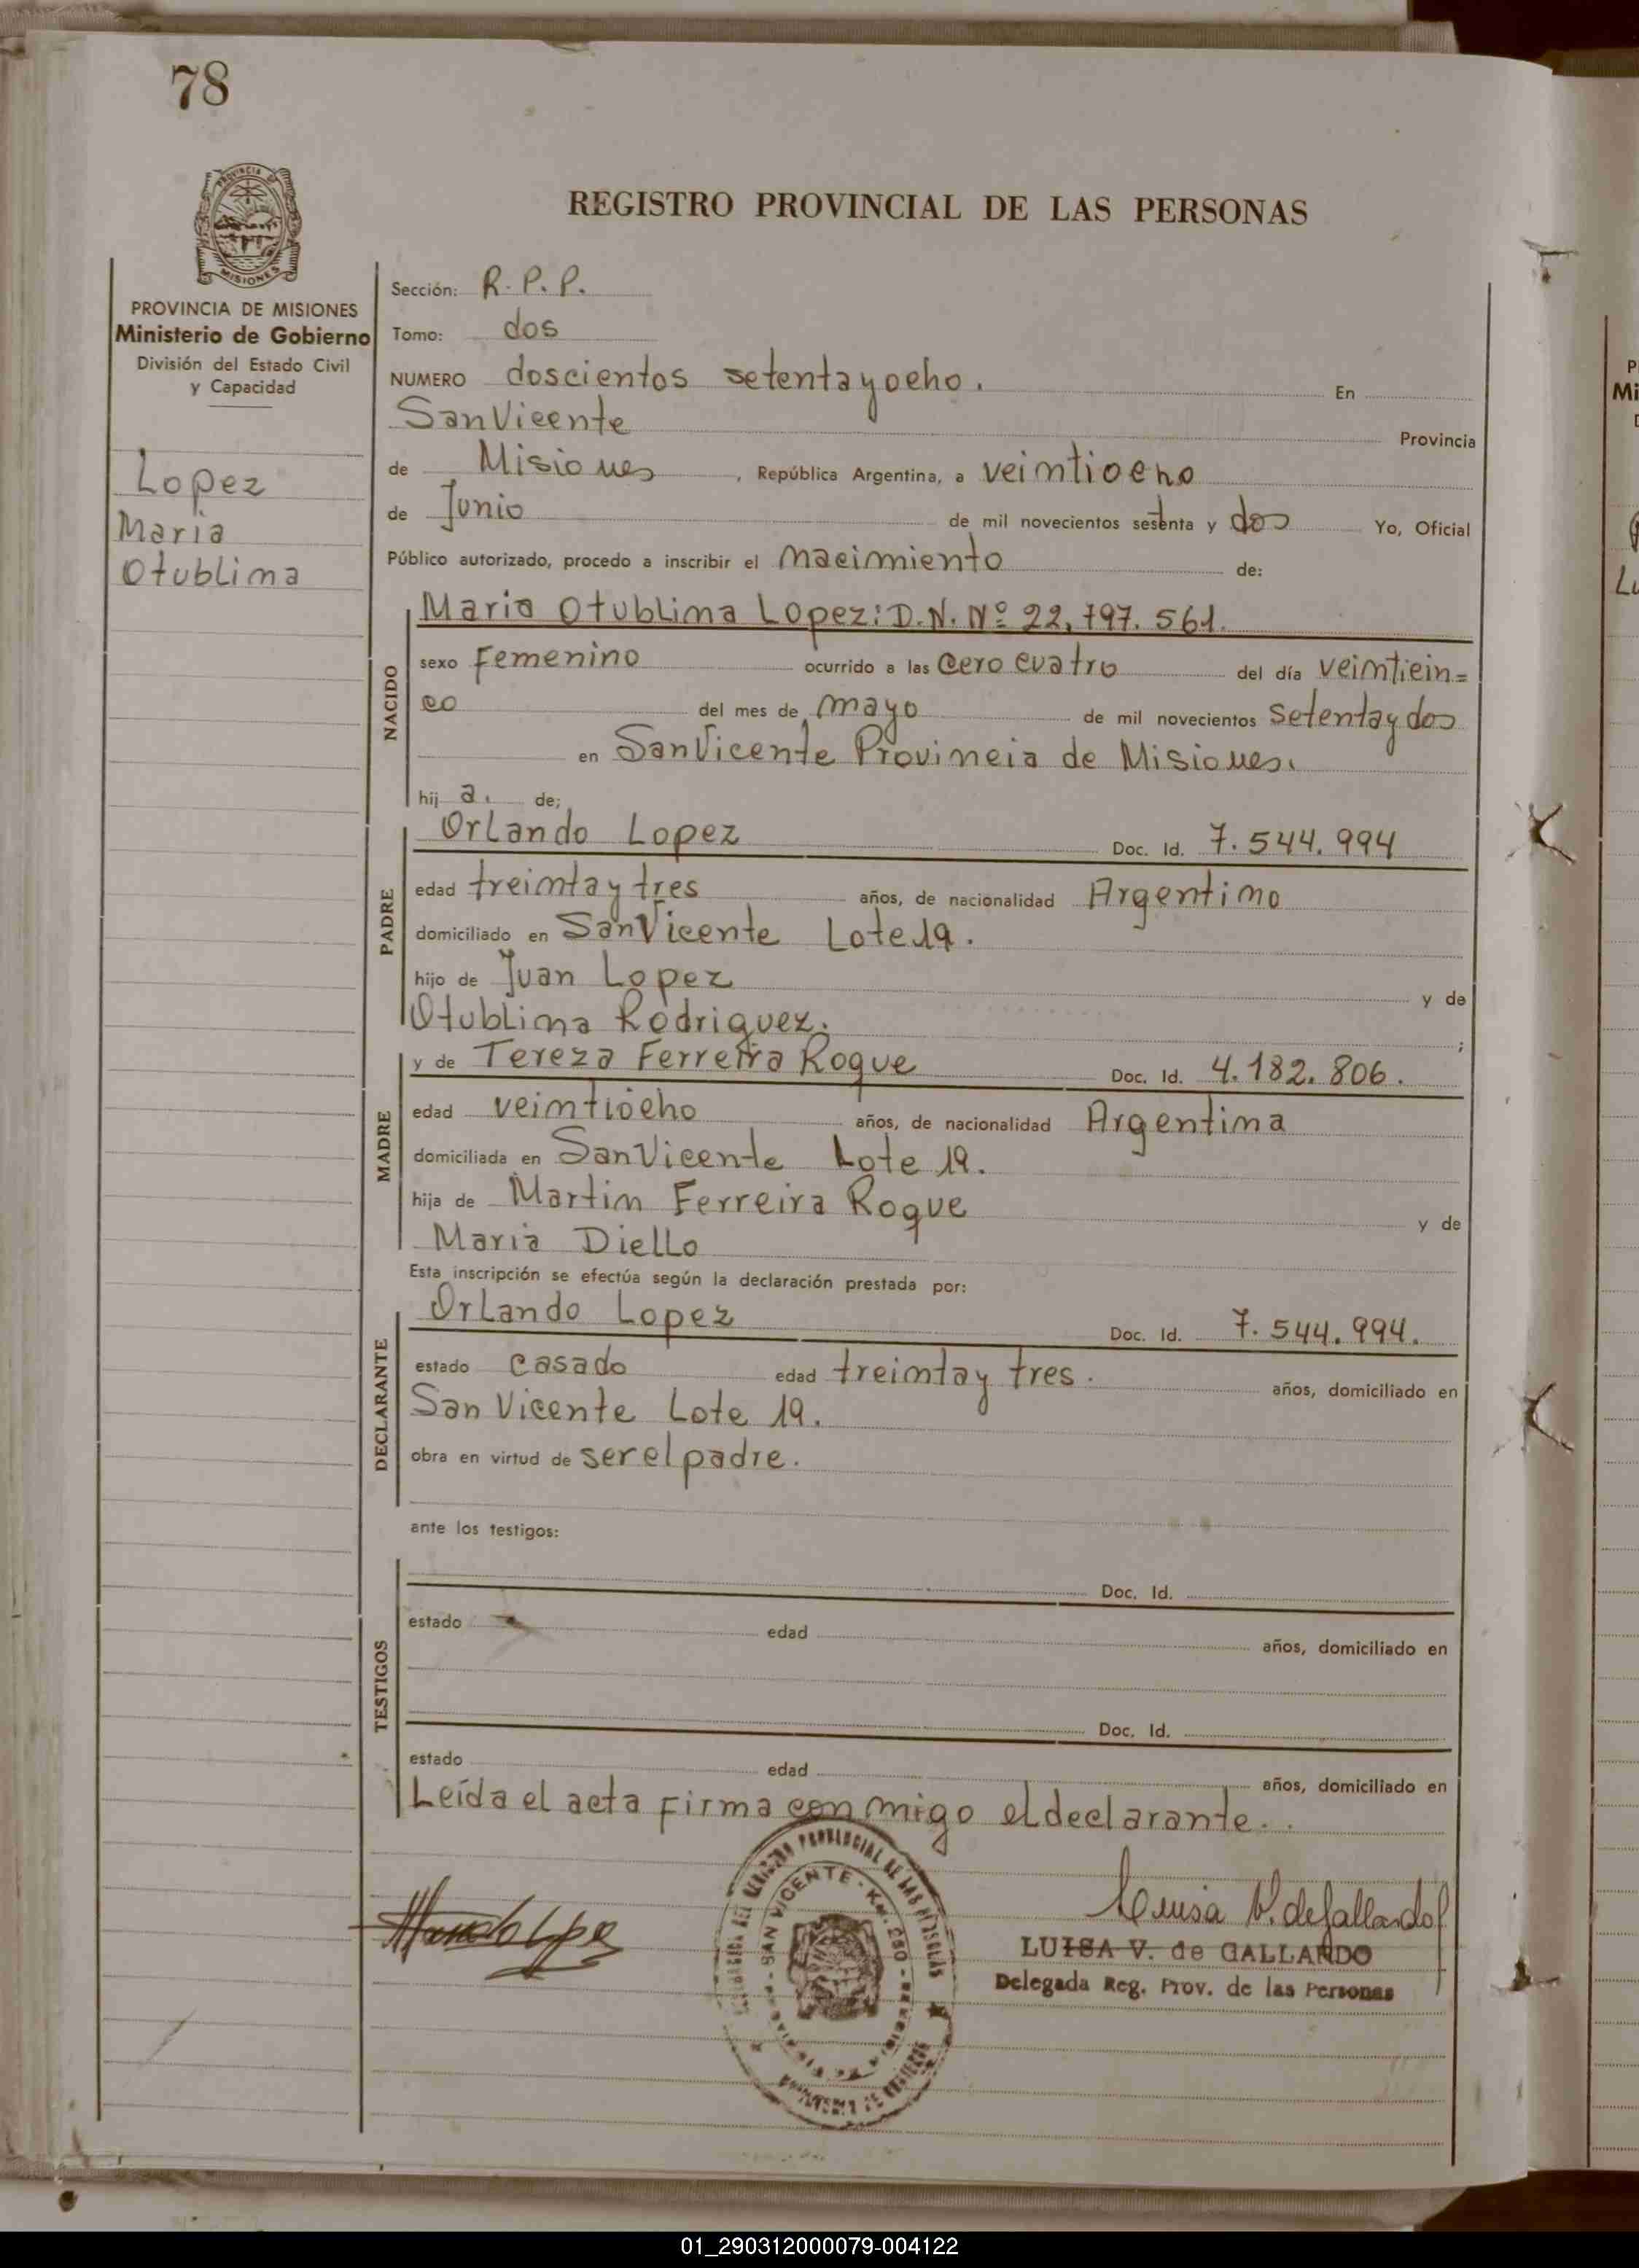 78
PROVINCIA DE
MISIONES
REGISTRO PROVINCIAL DE LAS PERSONAS
PROVINCIA DE MISIONES
Ministerio de Gobierno
División del Estado Civil
y Capacidad
Lopez
Maria
Otublima
Sección: R. P. P.
Tomo: dos
NUMERO doscientos setenta y ocho. En
San Vicente Provincia
de Misiones, República Argentina, a veintiocho
de Junio de mil novecientos setenta y dos Yo, Oficial
Público autorizado, procedo a inscribir el nacimiento de:
Maria Otublima Lopez: D.N. Nº 22,797.561.
NACIDO
sexo Femenino ocurrido a las cero cuatro del día veinticin=
co del mes de mayo de mil novecientos setenta y dos
en San Vicente Provincia de Misiones.
hij a. de;
PADRE
Orlando Lopez Doc. Id. 7.544.994
edad treinta y tres años, de nacionalidad Argentino
domiciliado en San Vicente Lote 19.
hijo de Juan Lopez y de
Otublina Rodriguez. ;
MADRE
y de Tereza Ferreira Roque Doc. Id. 4.182.806.
edad veintiocho años, de nacionalidad Argentina
domiciliada en San Vicente Lote 19.
hija de Martin Ferreira Roque y de
Maria Diello
Esta inscripción se efectúa según la declaración prestada por:
DECLARANTE
Orlando Lopez Doc. Id. 7.544.994.
estado casado edad treinta y tres. años, domiciliado en
San Vicente Lote 19.
obra en virtud de ser el padre.
ante los testigos:
TESTIGOS
Doc. Id.
estado edad años, domiciliado en
Doc. Id.
estado edad años, domiciliado en
Leída el acta firma conmigo el declarante.
PROVINCIAL DE LAS PERSONAS
SAN VICENTE - Km. 250
Luisa V. de Gallardo
LUISA V. de GALLARDO
Delegada Reg. Prov. de las Personas
01_290312000079-004122